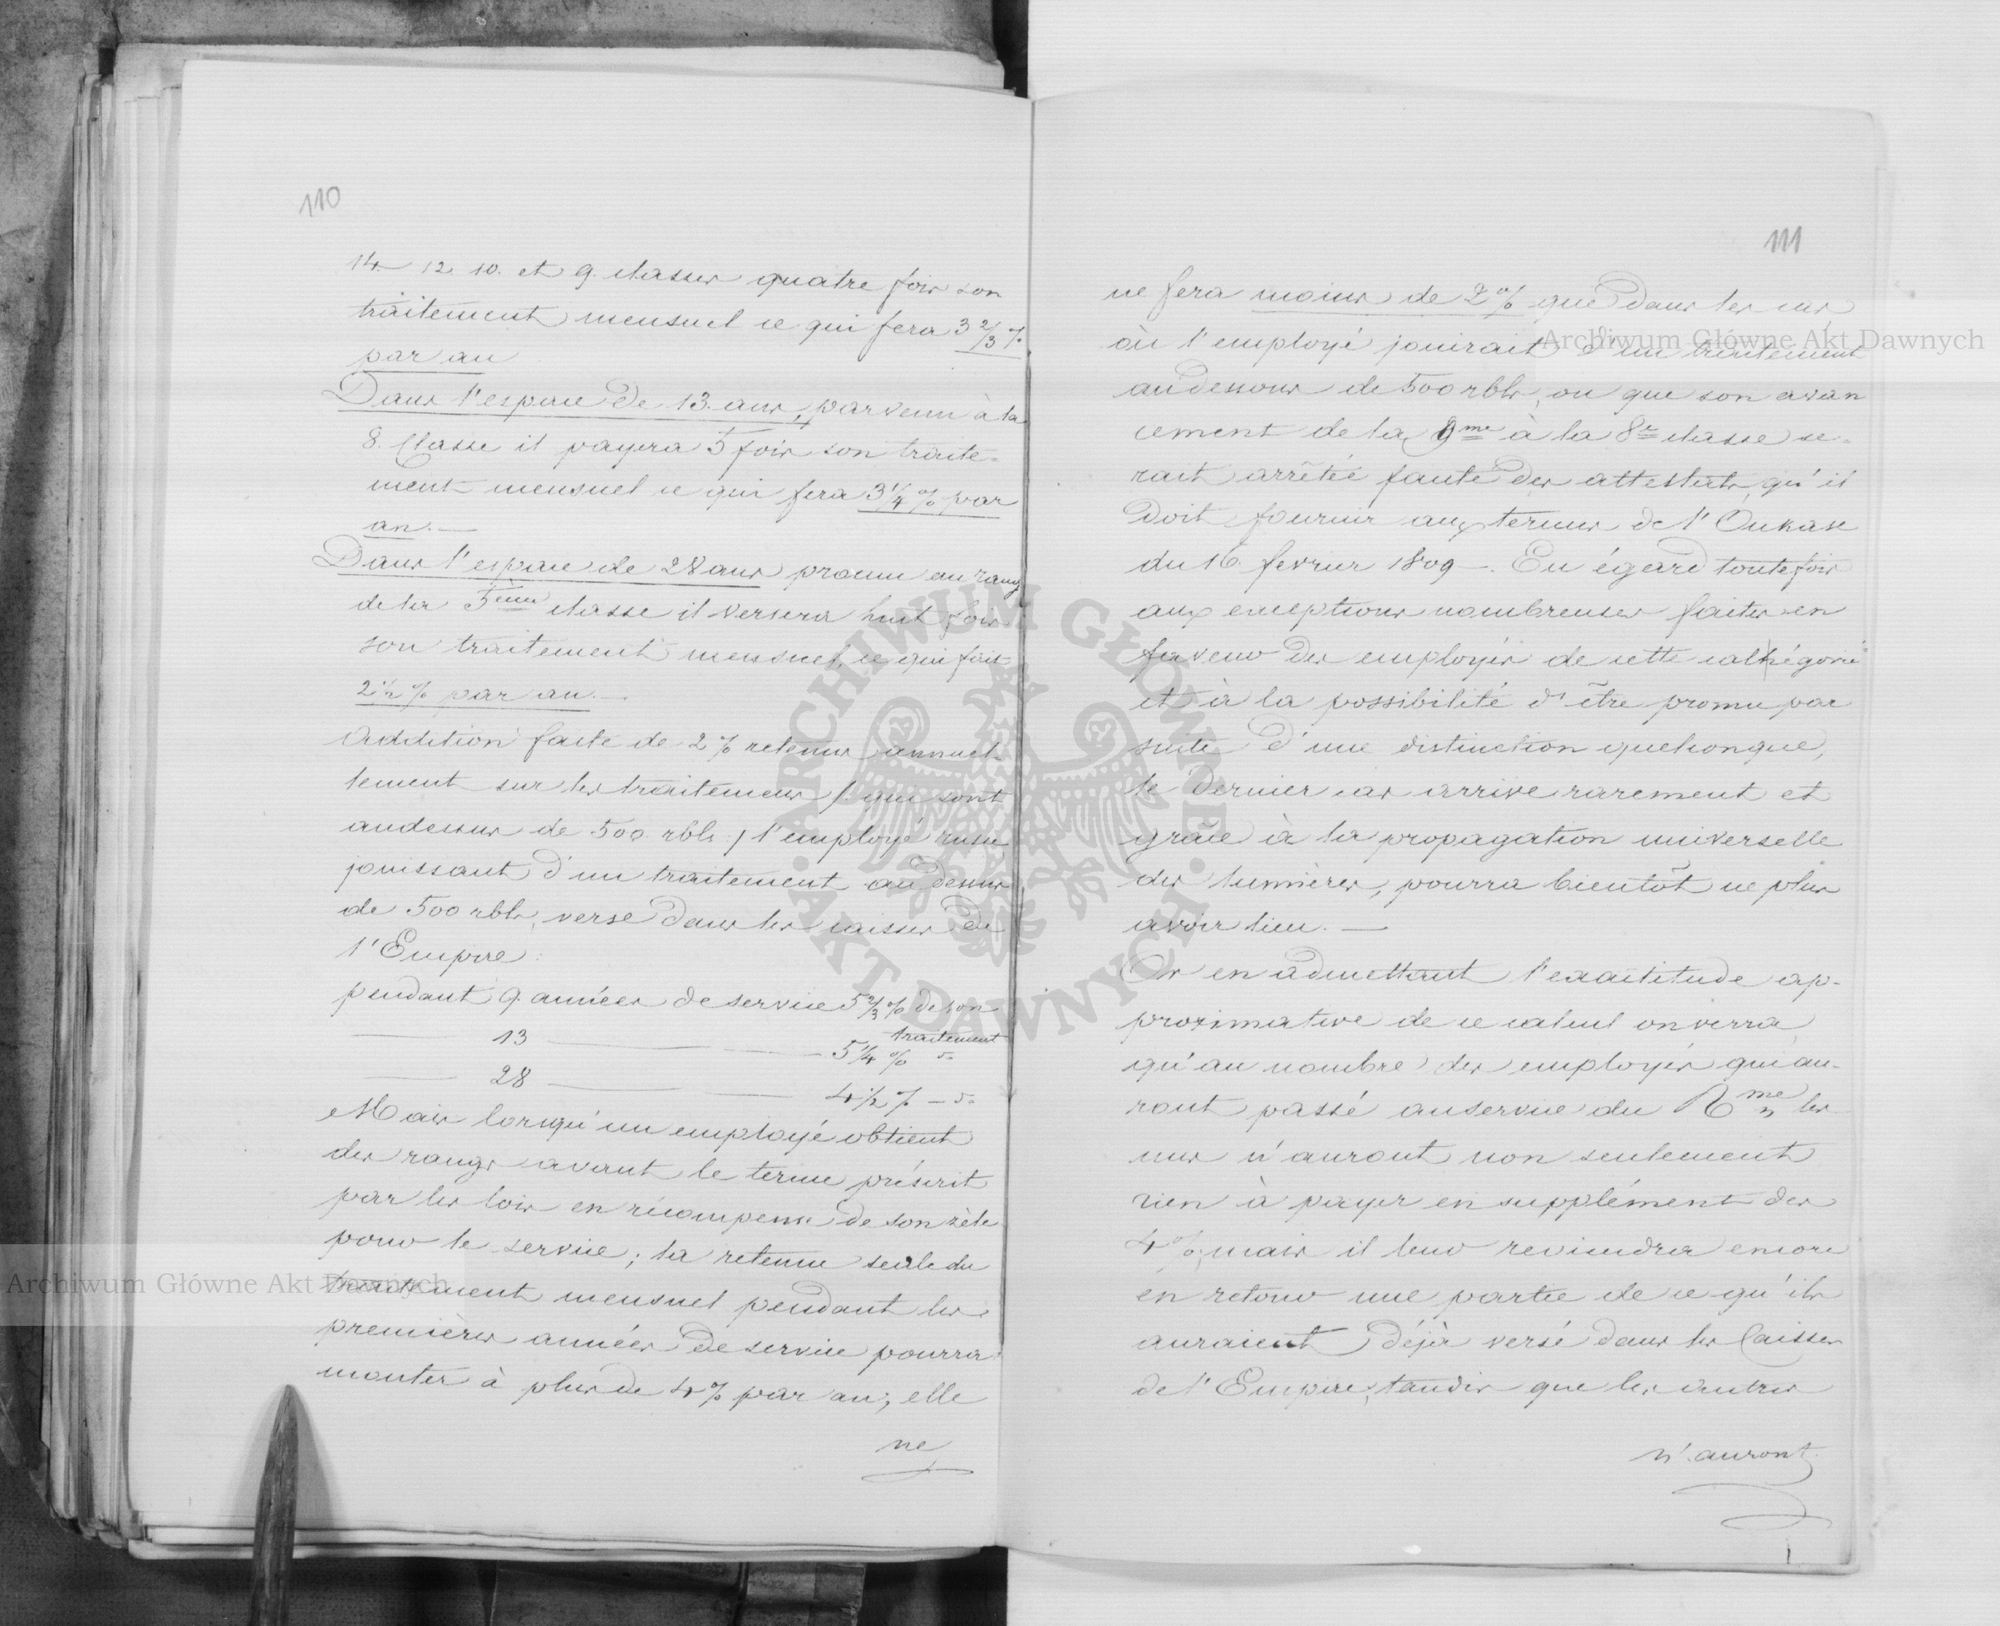 110
14. 12. 10. et 9. classes quatre fois son
traitement mensuel ce qui fera 3 2/3 %
par an
Dans l'espace de 13. ans, parvenu à la
8. Classe il payera 5 fois son traite=
ment mensuel ce qui fera 3 1/4 % par
an. —
Dans l'espace de 28 ans promu au rang
de la 5ème classe il versera huit fois
son traitement mensuel, ce qui fait
2 1/2 % par an. —
Addition faite de 2 % retenus annuel-
lement sur les traitemens /: qui sont
audessus de 500 rbls / l'employé russe
jouissant d'un traitement au dessus
de 500 rbls, verse dans les caisses de
l'Empire:
pendant 9. années de service 5 2/3 % de son
traitement
— 13 — — 5 1/4 % ”
— 28 — — 4 1/2 % — ”
Mais lorsqu'un employé obtient
des rangs avant le terme préscrit
par les lois en récompense de son zèle
pour le service; la retenue seule du
traitement mensuel pendant les
premières années de service pourra
monter à plus de 4 % par an; elle
ne
111
ne fera moins de 2 % que dans les cas
où l'employé jouirait d'un traitement
audessous de 500 rbls, ou que son avan
cement de la 9me à la 8e classe se=
rait arrêtée faute des attestats, qu'il
doit fournir aux termes de l'Oukase
du 16. fevrier 1809 —. Eu égard toutefois
aux exceptions nombreuses faites en
faveur des employés de cette cathégorie
et à la possibilité d'être promu par
suite d'une distinction quelconque,
le dernier cas arrive rarement et
grâce à la propagation universelle
des lumières, pourra bientôt ne plus
avoir lieu. —
Or en admettant l'exactitude ap-
proximative de ce calcul on verra,
qu'au nombre des employés qui au-
ront passé au service du Rme les
uns n'auront non seulement
rien à payer en supplément des
4 %, mais il leur reviendra encore
en retour une partie de ce qu'ils
auraient déjà versé dans les Caisses
de l'Empire, tandis que les autres
n'auront
Archiwum Główne Akt Dawnych
Archiwum Główne Akt Dawnych
ARCHIWUM GŁÓWNE · AKT DAWNYCH ·